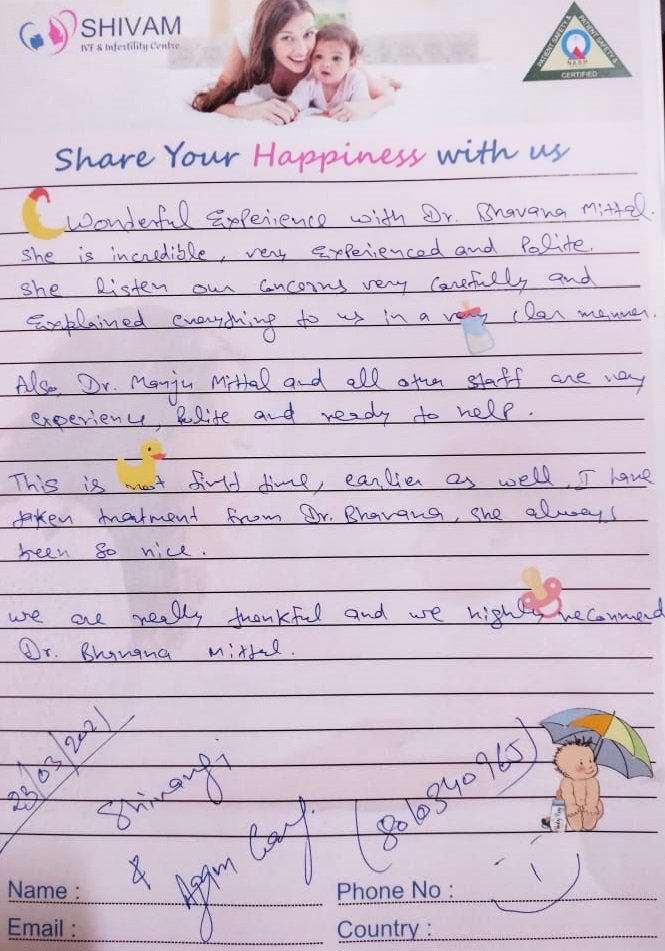 SHIVAM
IVF & Infertility Centre
PATIENT SAFETY &
PATIENT SAFETY &
NABH
CERTIFIED
Share Your Happiness with us
Wonderful Experience with Dr. Bhavana Mittal.
She is incredible, very Experienced and Polite.
She listen our concerns very carefully and
Explained everything to us in a very clar manner.
Also, Dr. Manju Mittal and all other staff are very
experience, Polite and ready to help.
This is not first time, earlier as well, I have
taken treatment from Dr. Bhavana, she always
been so nice.
we are really thankful and we highly recommend
Dr. Bhavana Mittal.
23/03/2021
Shivangi
&
(8010340965)
Name :
Phone No :
Email :
Country :